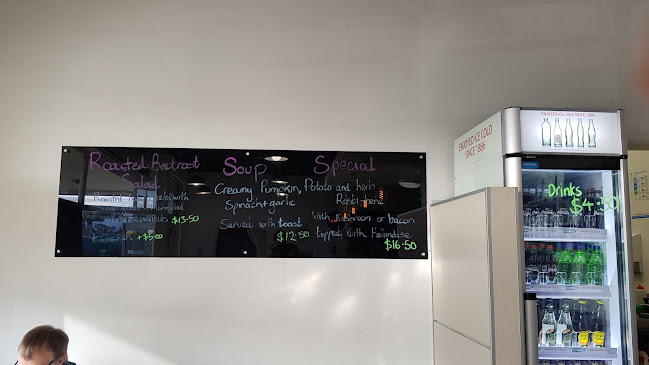 Roasted Beetroot
Salad
with
$13.50
+ $5.00
Soup
Creamy Pumpkin,
Spinach+garlic
Served with toast
$12.50
Special
Potato and herb
with or bacon
topped with Hollindase
$16.50
ENJOYED ICE COLD
SINCE 1886
ENJOYED ICE COLD SINCE 1886
Drinks
$4.50